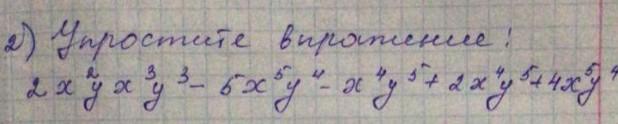 2) Упростите выражение:
2x²yx³y³ - 5x⁵y⁴ - x⁴y⁵ + 2x⁴y⁵ + 4x⁵y⁴